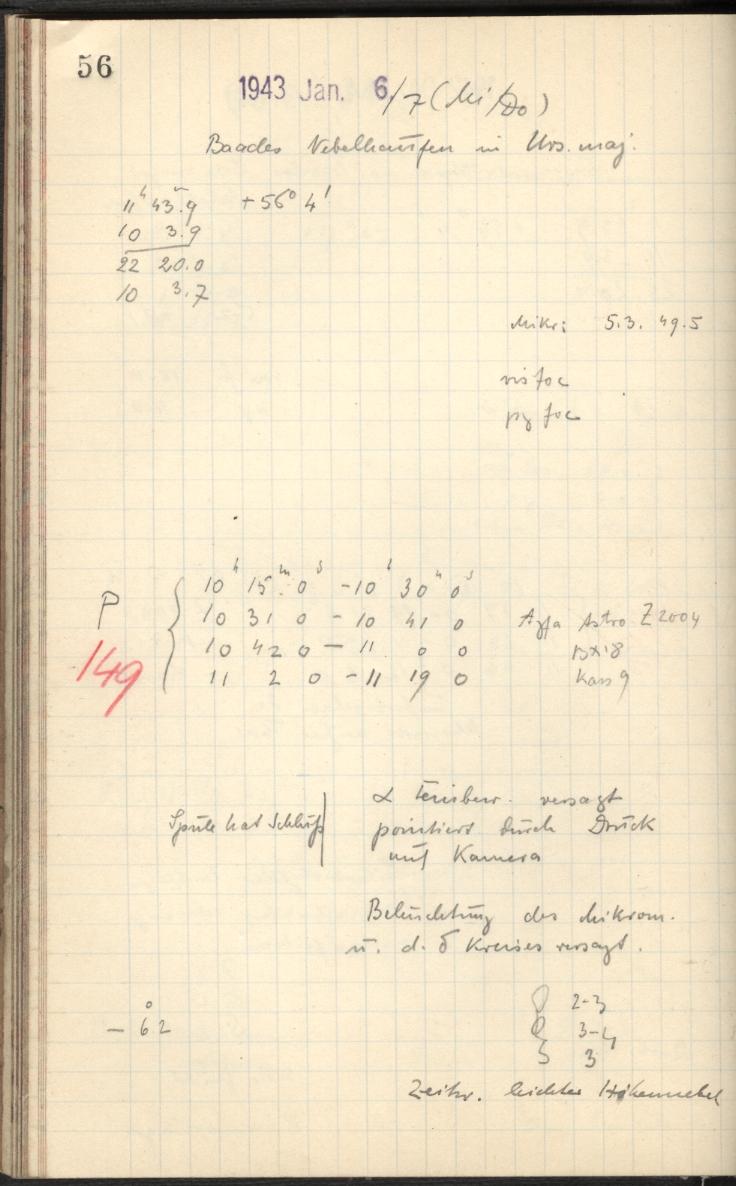 56
1943 Jan. 6/7 (Mi/Do)
Baades Nebelhaufen in Urs. maj.
11h 43m.9 +56° 4'
10 3.9
22 20.0
10 3.7
Mikr: 5.3. 49.5
vis foc
pg foc
P 149
10h 15m 0s - 10h 30m 0s
10 31 0 - 10 41 0
10 42 0 - 11 0 0
11 2 0 - 11 19 0
Agfa Astro Z 2004
13x18
Kass 9
Spule hat Schluß
α Feinbew. versagt
pointiert durch Druck
auf Kamera
Beleuchtung des Mikrom.
u. d. δ Kreises versagt.
- 6°2
2-3
3-4
3
Zeitw. leichter Höhennebel